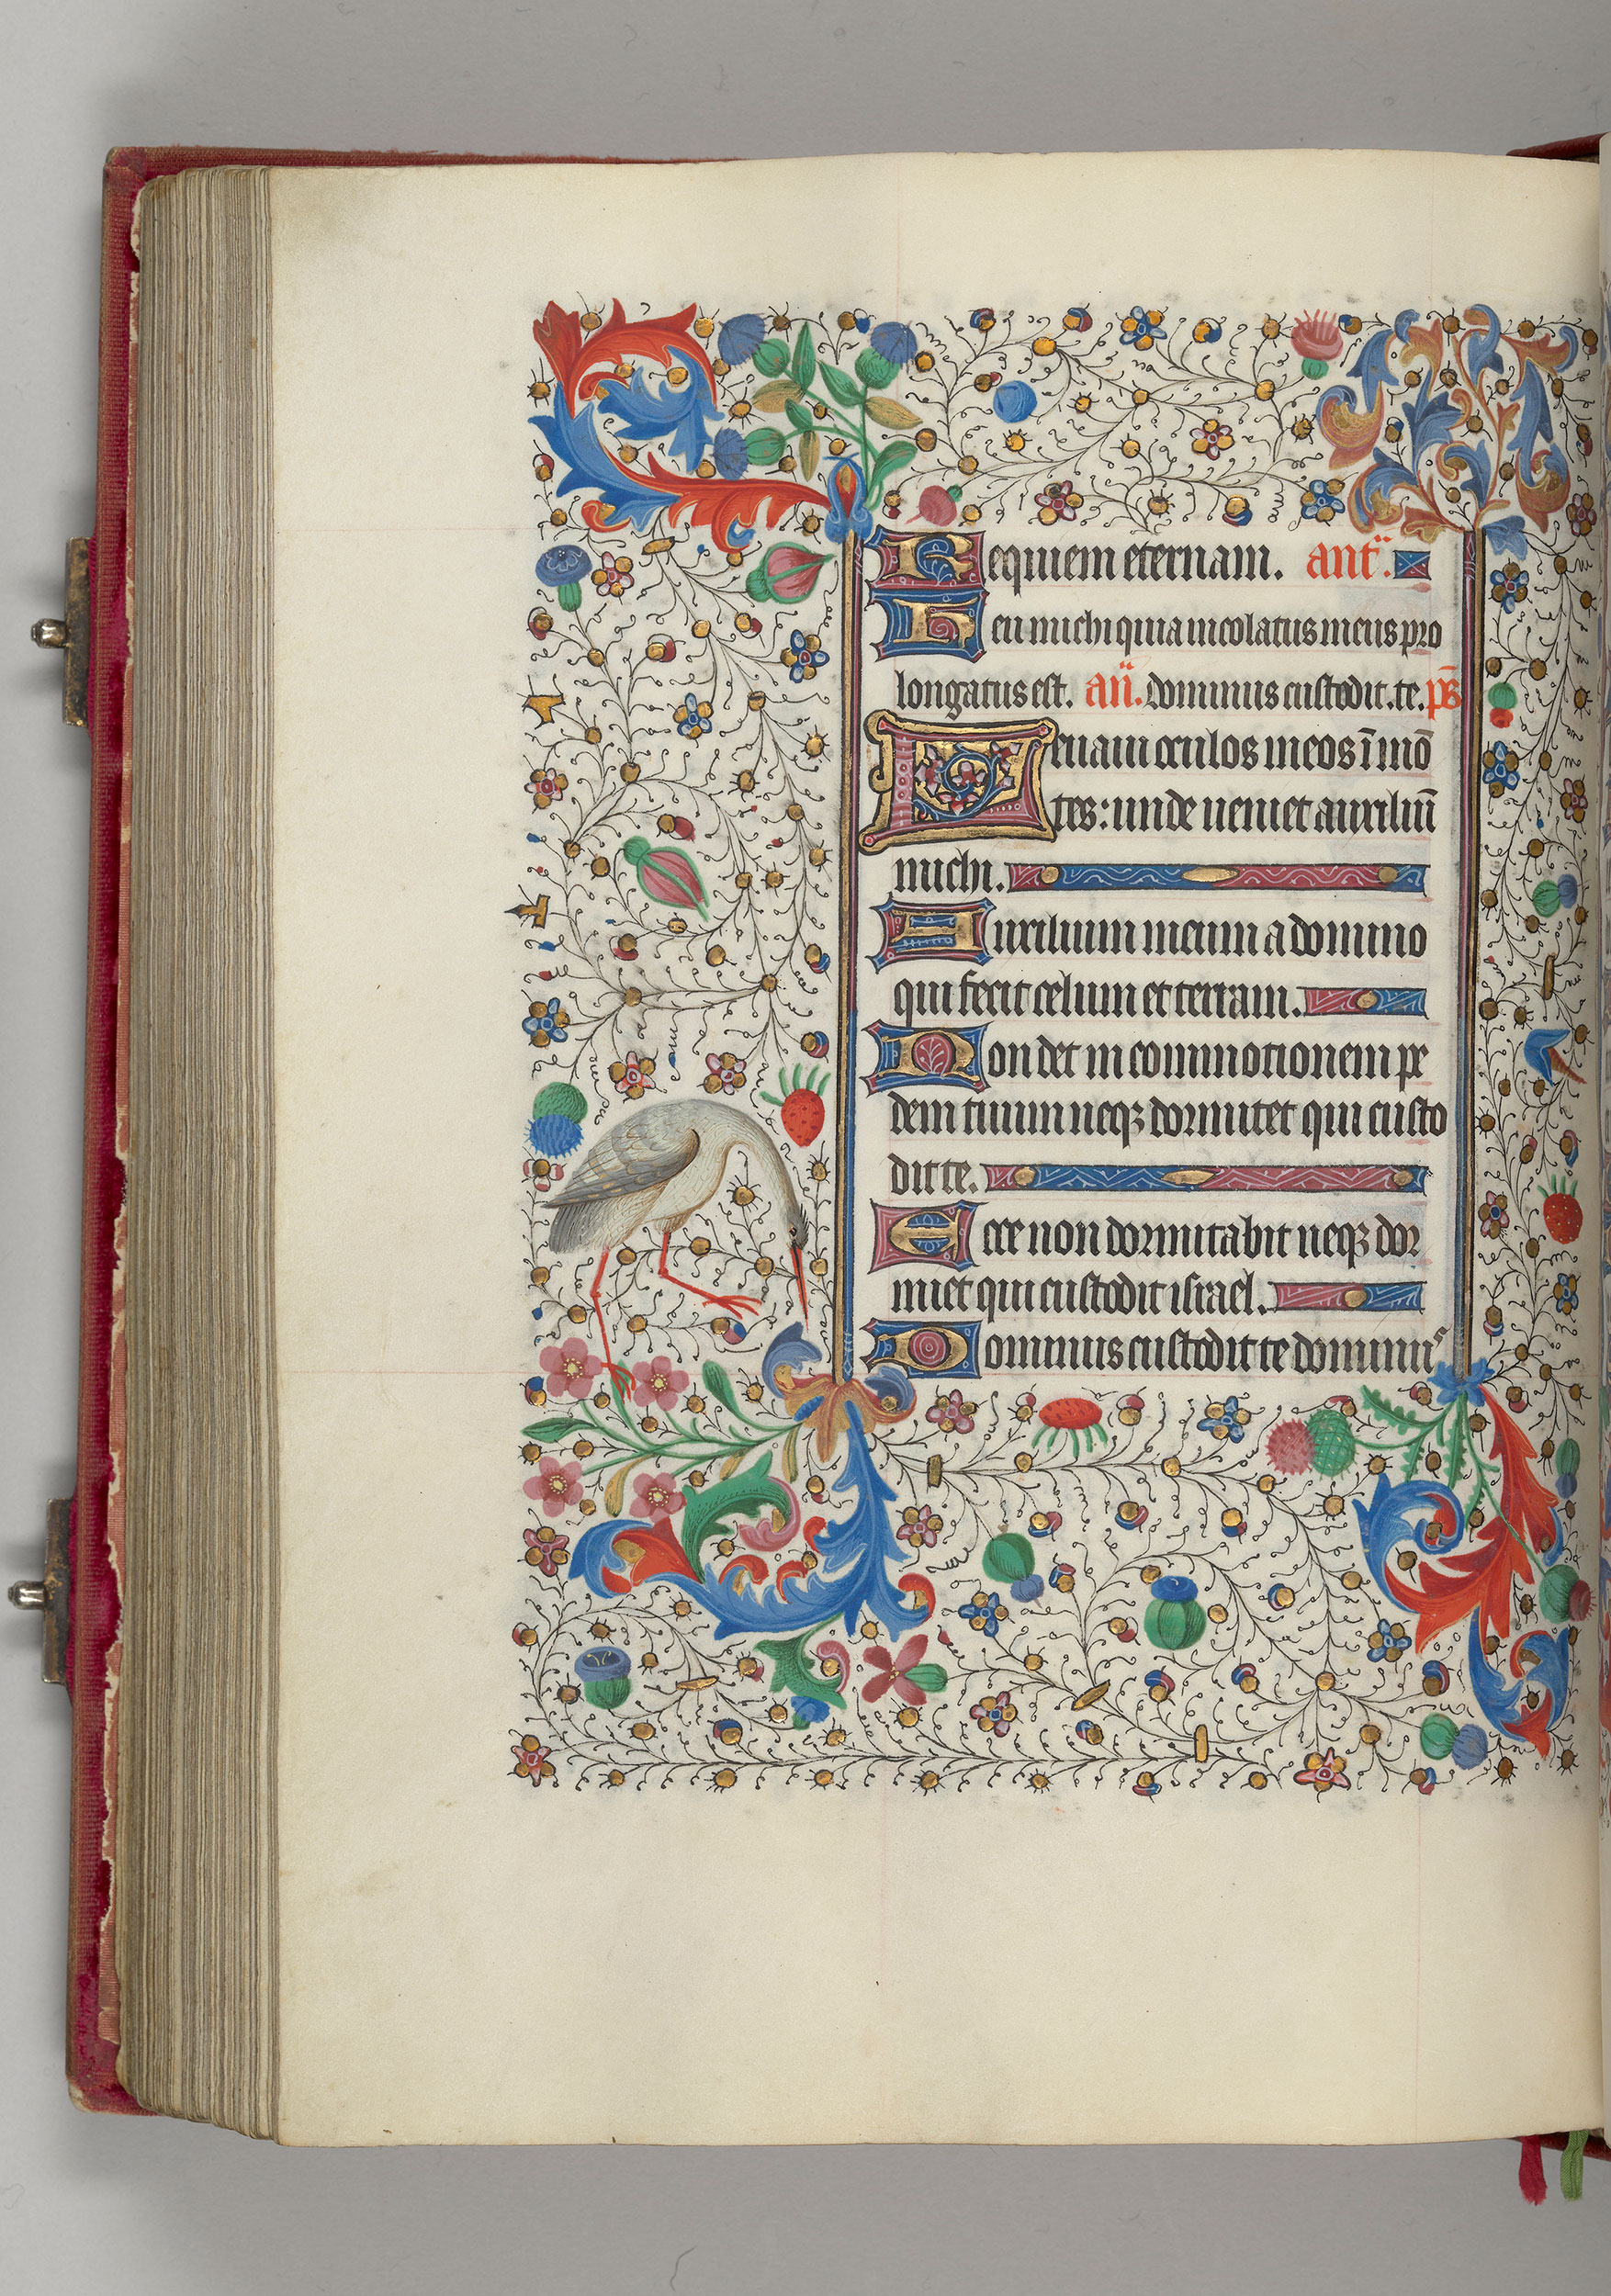 Requiem eternam. anta.
Heu michi quia incolatus meus pro
longatus est. añ. dominus custodit. te. ps̄
Leuaui oculos meos ī mō
tes: unde ueniet auxiliū
michi.
Auxilium meum a domino
qui fecit celum et terram.
Non det in commotionem pe
dem tuum neqꝫ dormitet qui custo
dit te.
Ecce non dormitabit neqꝫ dor
miet qui custodit israel.
Dominus custodit te dominus